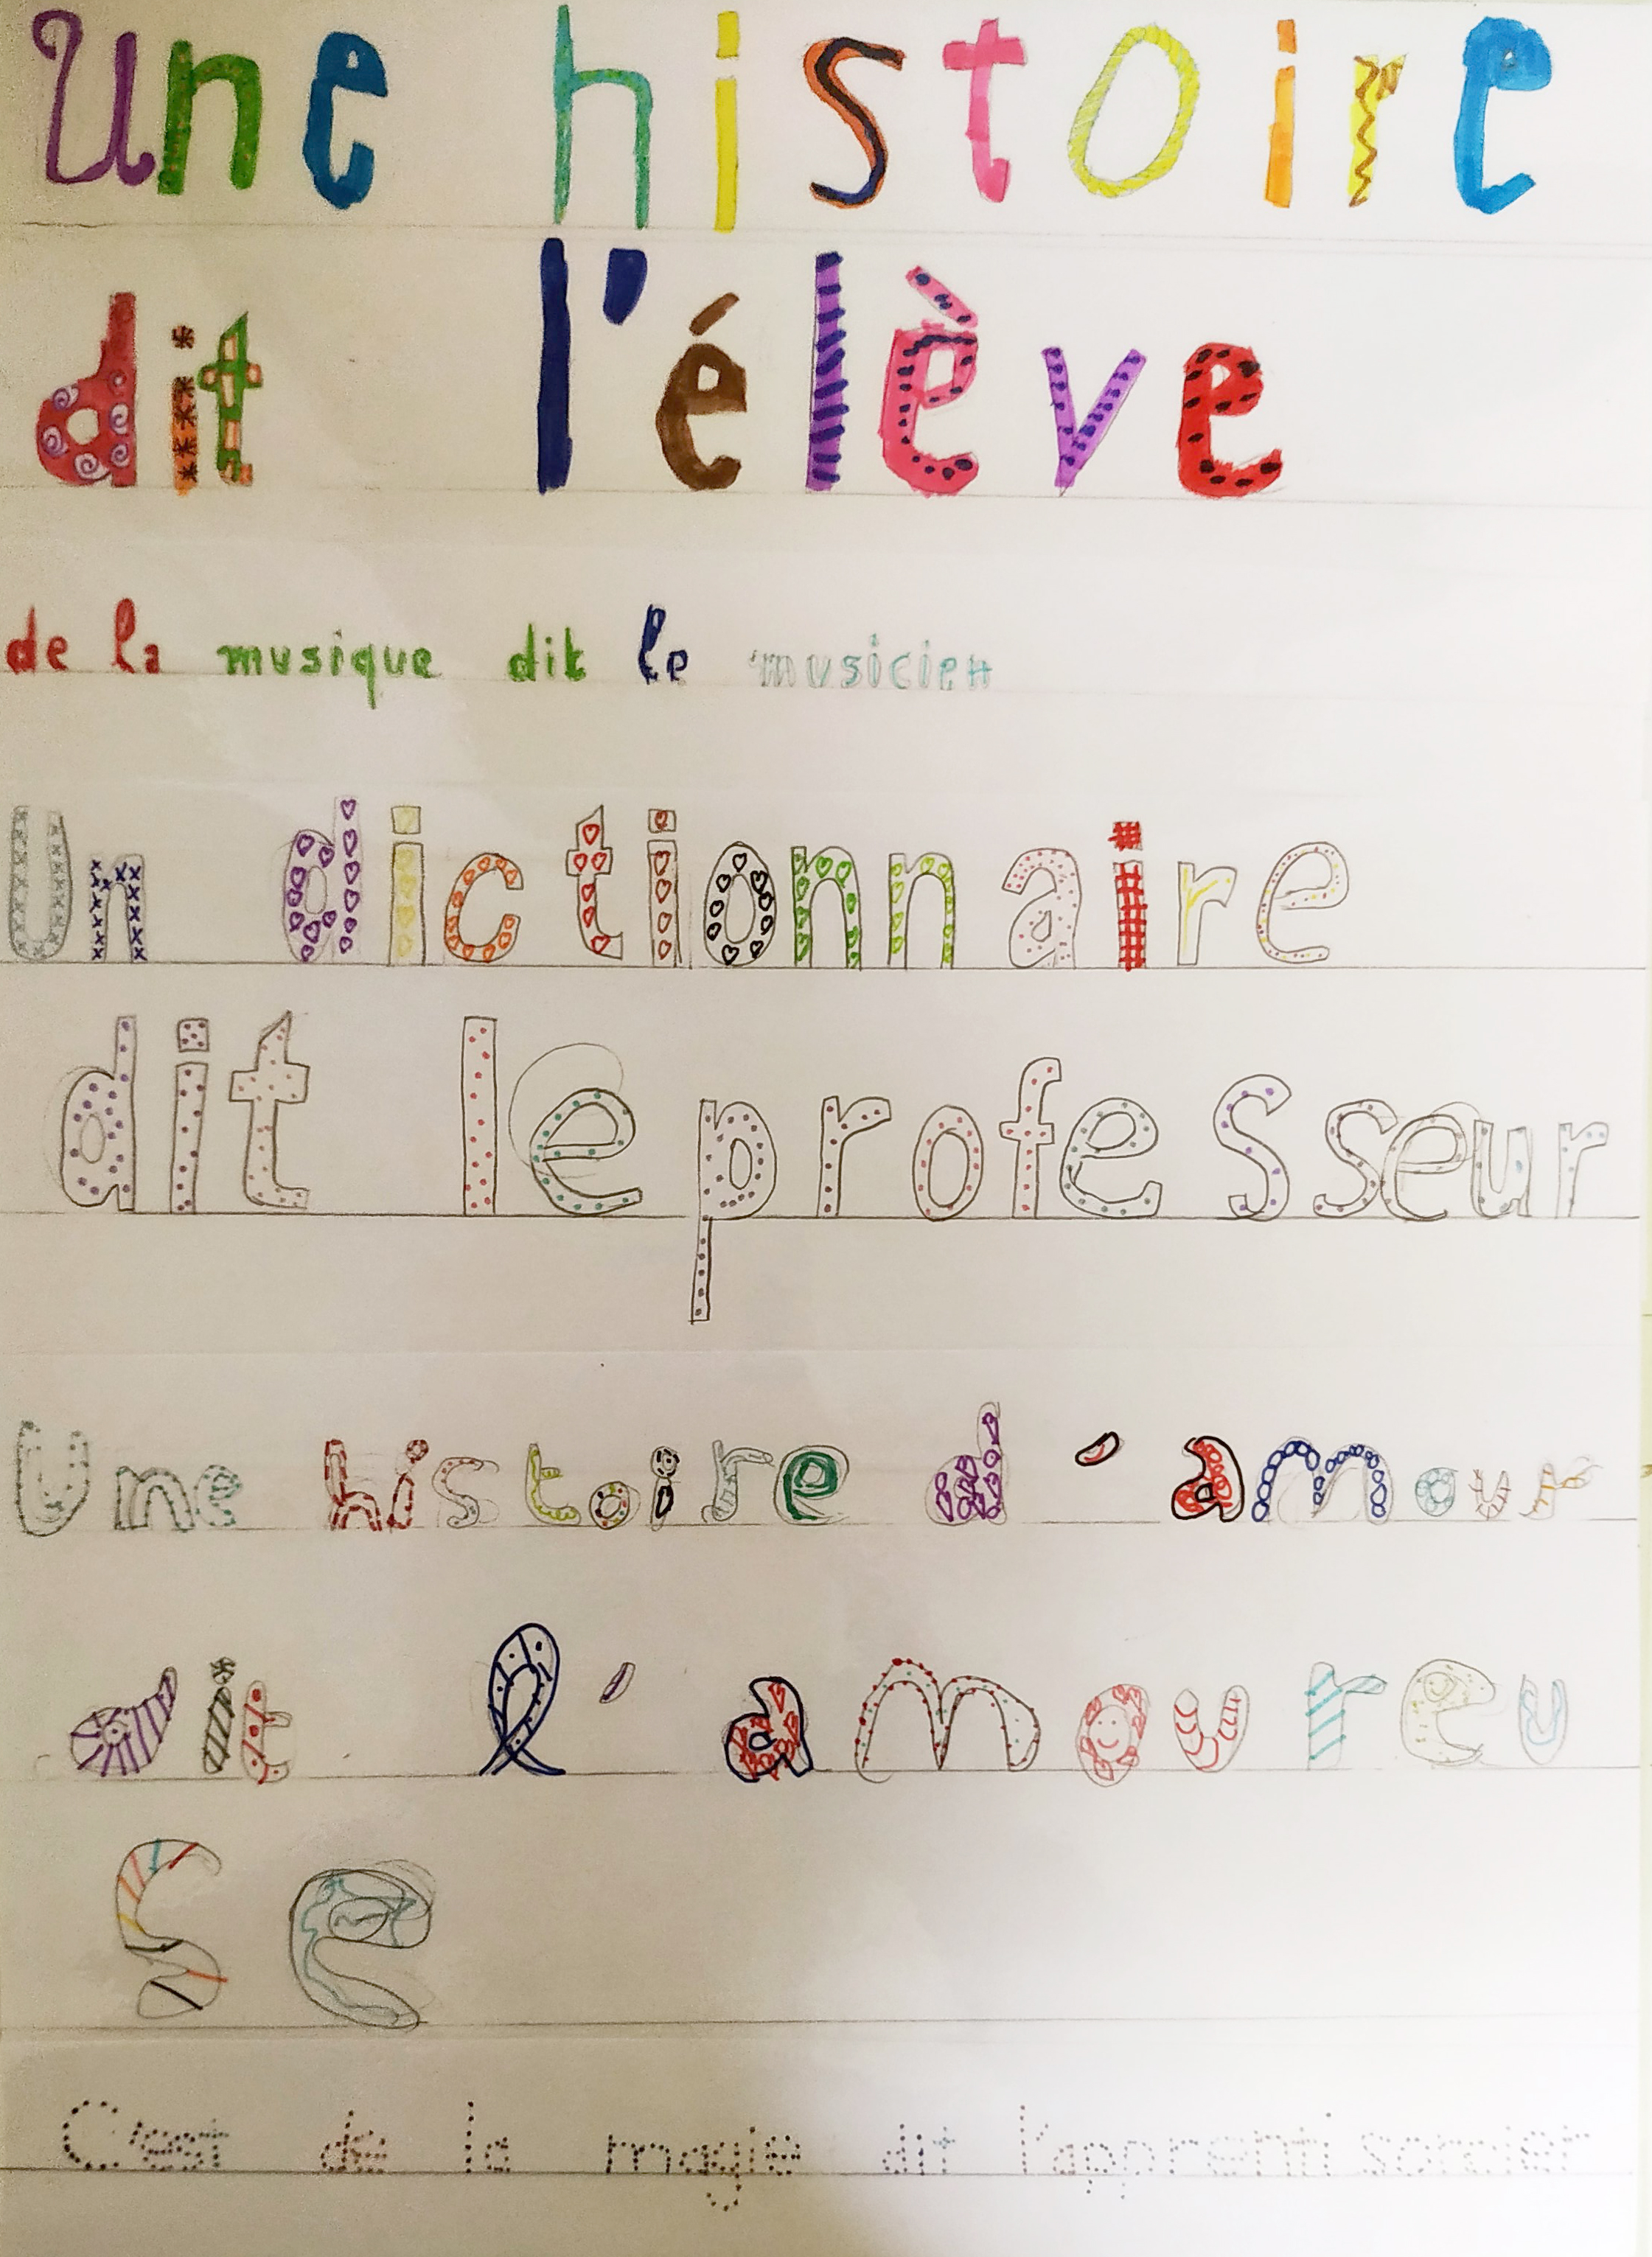 Une histoire
dit l'élève
de la musique dit le musicien
Un dictionnaire
dit le professeur
Une histoire d'amour
dit l'amoureu
se
C'est de la magie dit l'apprenti sorcier